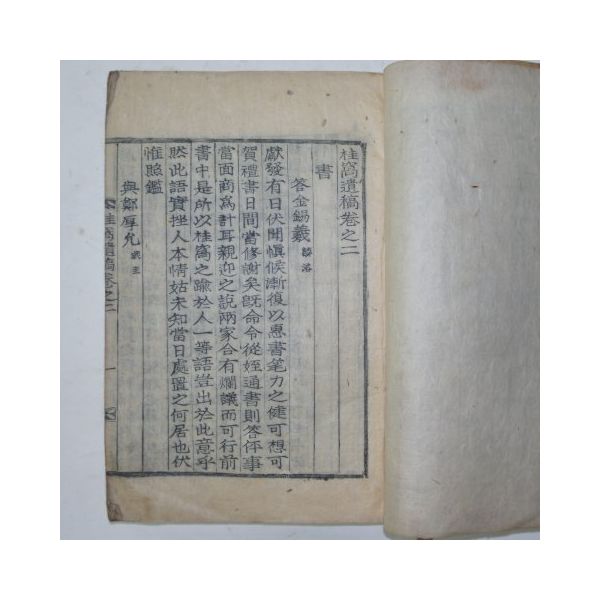 桂窩遺稿卷之二
書
答金錫羲
獻發有日伏聞愼候漸復以惠書笔力之健可想可
賀禮書日間當修謝矣旣命令從姪通書則答伻事
當面商爲計耳親迎之說兩家合有爛議而可行前
書中是所以桂窩之踰於人一等語豈出於此意乎
然此語實挫人本情姑未知當日處置之何居也伏
惟照鑑
與鄭厚允
桂窩遺稿卷之二
一